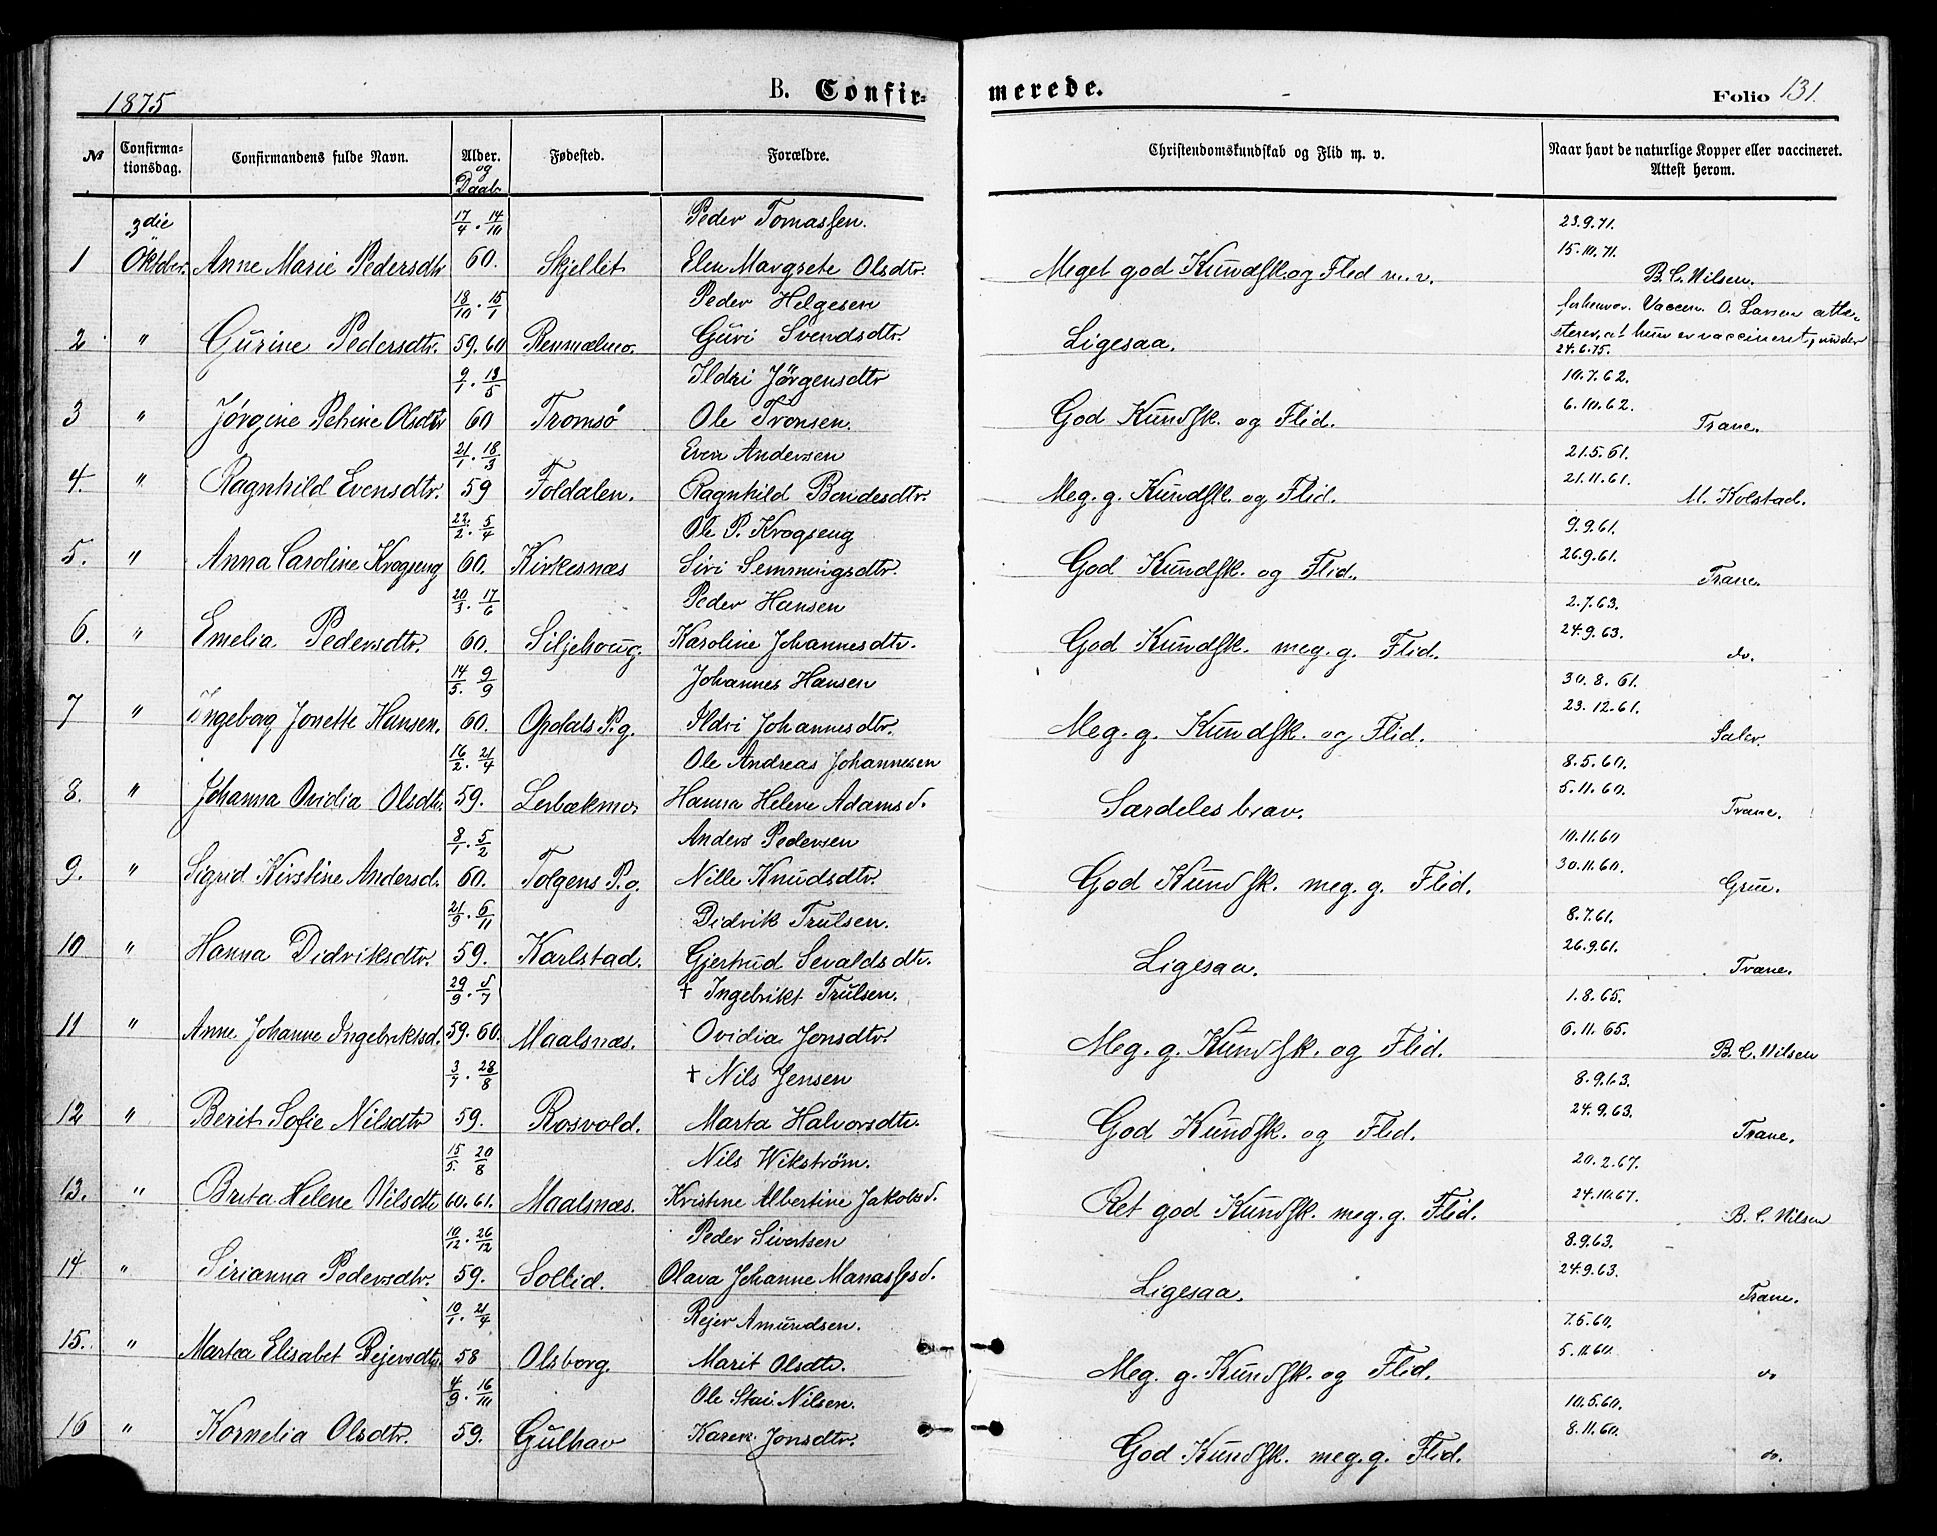 1875
B. Confir-
merede.
Folio 131.
№
Confirma-
tionsdag.
Confirmandens fulde Navn.
Alder.
og
Daab
Fødested.
Forældre.
Christendomskundskab og Flid m. v.
Naar havt de naturlige Kopper eller vaccineret.
Attest herom.
3die 17/4 . 14/10 Peder Tomassen. 23.9.71.
1 Oktober. Anne Marie Pedersdtr 60. Skjellet Elen Margrete Olsdtr. Meget god Kundsk. og Flid m. v. 15.10.71. B. C. Nilsen.
18/10 . 15/1 Peder Helgesen forhenv. Vaccin. O. Larsen atte-
2 " Gurine Pedersdtr. 59.60 Renmælmo. Guri Svendsdtr. Ligesaa. sterer, at hun er vaccineret, under
24.6.75.
9/1 . 13/5 Ildri Jørgensdtr 10.7.62.
3 " Jørgine Petrine Olsdtr 60 Tromsø Ole Tronsen. God Kundsk. og Flid. 6.10.62. Trane.
21/1 . 18/3 Even Andersen 21.5.61.
4. " Ragnhild Evensdtr. 59 Foldalen. Ragnhild Bendesdtr. Meg. g. Kundsk. og Flid. 21.11.61. M. Kolstad.
22/2 . 5/4 Ole P. Krogseng 9.9.61.
5. " Anna Caroline Krogseng 60. Kirkesnæs Siri Semmingsdtr. God Kundsk. og Flid. 26.9.61. Trane.
20/3 . 17/6 Peder Hansen 2.7.63.
6. " Emelia Pedersdtr. 60. Siljehoug. Karoline Johannesdtr. God Kundsk. meg. g. Flid. 24.9.63. do.
14/5. 9/9 Johannes Hansen 30.8.61.
7 " Ingeborg Jonette Hansen. 60. Opdals P.g. Ildri Johannesdtr. Meg. g. Kundsk. og Flid. 23.12.61. Saler.
16/2 . 21/4 Ole Andreas Johannesen 8.5.60.
8. " Johanna Ovidia Olsdtr. 59. Lerbækmo. Hanna Helene Adamsd. Særdeles brav. 5.11.60. Trane.
8/1 . 5/2 Anders Pedersen 10.11.60
9. " Sigrid Kirstine Andersd. 60. Tolgens P.g. Nille Knudsdtr. God Kundsk. meg. g. Flid. 30.11.60. Grue.
21/9 . 6/11 Didrik Trulsen. 8.7.61.
10 " Hanna Didriksdtr. 59. Karlstad. Gjertrud Sevaldsdtr. Ligesaa. 26.9.61. Trane.
29/9 . 8/7 † Ingebrikt Trulsen. 1.8.65.
11 " Anne Johanne Ingebriktsd. 59.60. Maalsnæs. Ovidia Jonsdtr. Meg. g. Kundsk. og Flid. 6.11.65. B. C. Nilsen
3/7 . 28/8 † Nils Jensen 8.9.63.
12 " Berit Sofie Nilsdtr 59. Rosvold. Marta Halvorsdtr. God Kundsk. og Flid. 24.9.63. Trane.
15/5. 20/8 Nils Wikström. 20.2.67.
13. " Brita Helene Nilsdtr 60.61. Maalsnæs. Kristine Albertine Jakobsd. Ret god Kundsk. meg. g. Flid. 24.10.67. B. C. Nilsen
10/12 . 26/12 Peder Sivertsen 8.9.63.
14 " Sirianna Pedersdtr. 59. Sollid. Olava Johanne Manassesd. Ligesaa. 24.9.63. Trane.
10/1 . 21/4 Rejer Amundsen. 7.5.60.
15. " Martea Elisabet Rejersdtr. 58 Olsborg. Marit Olsdtr. Meg. g. Kundsk. og Flid. 5.11.60 do
4/9 . 16/10 Ole Stai Nilsen. 10.5.60.
16 " Kornelia Olsdtr. 59. Gulhav Karen Jonsdtr. God Kundsk. meg. g. Flid. 8.11.60. do.